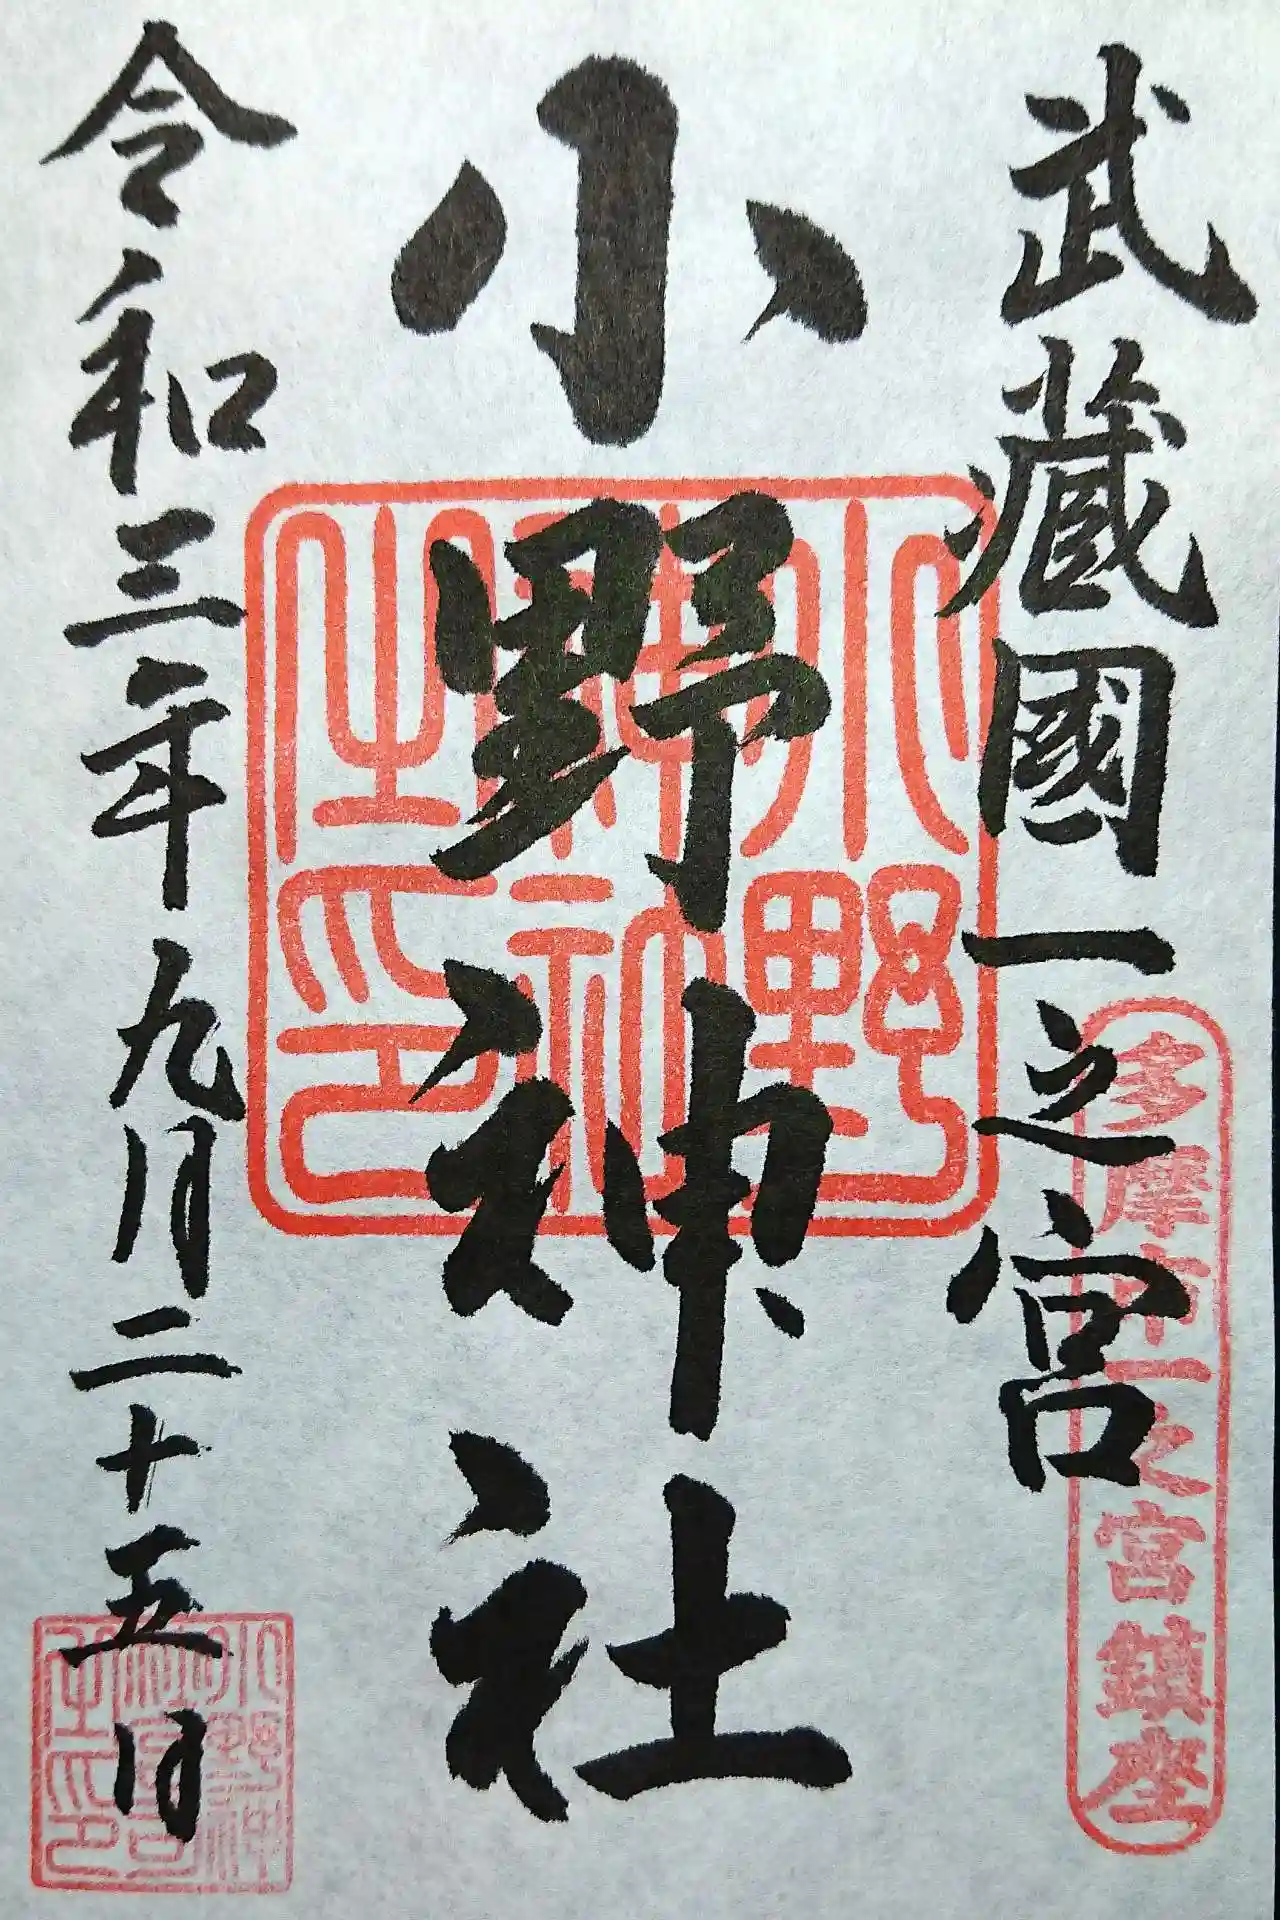 武藏國一之宮
多摩市一之宮鎮座
小野神社
小野神社之印
令和三年九月二十五日